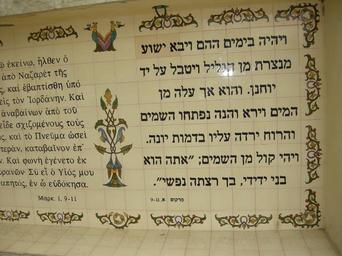 ῳ ἐκείνῳ, ἦλθεν ὁ
ἀπὸ Ναζαρὲτ τῆς
καὶ ἐβαπτίσθη ὑπὸ
εἰς τὸν Ἰορδάνην. Καὶ
ἀναβαίνων ἀπὸ τοῦ
εἶδε σχιζομένους τοὺς
καὶ τὸ Πνεῦμα ὡσεὶ
στερὰν, καταβαῖνον ἐπ'
Καὶ φωνὴ ἐγένετο ἐκ
ρανῶν· Σὺ εἶ ὁ Υἱός μου
απητὸς, ἐν ᾧ εὐδόκησα.
Μαρκ. 1, 9-11
ויהיה בימים ההם ויבא ישוע
מנצרת מן הגליל ויטבל על יד
יוחנן. והוא אך עלה מן
המים וירא והנה נפתחו השמים
והרוח ירדה עליו בדמות יונה.
ויהי קול מן השמים; "אתה הוא
בני ידידי, בך רצתה נפשי".
מרקוס א. 9-11